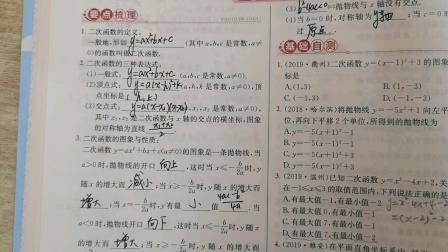 要点梳理
1. 二次函数的定义
一般地,形如 y=ax²+bx+c (其中a,b,c是常数,a≠0)
的函数叫做二次函数.
2. 二次函数的三种表达式:
(1)一般式: y=ax²+bx+c (a,b,c是常数,a≠0).
(2)顶点式: (a,h,k是常数,a≠0),顶
点坐标是 (h,k)
(3)交点式:
其中x₁,x₂是二次函数与x轴的交点的横坐标,图象
的对称轴为直线
3. 二次函数的图象与性质:
二次函数y=ax²+bx+c(a≠0)的图象是一条抛物线,当
a>0时,抛物线的开口 向上 ,这时当x≤-b/2a时,y
随x的增大而 减小 ;当x≥-b/2a时,y随x的增大而
增大 ,当x=-b/2a时,y有最 小 值
a<0时,抛物线开口 向下 ,这时当x≤-b/2a时,y随x
的增大而 增大 ;当
抛物线与x轴没有交点.
(4)当b=0时,对称轴为 y轴 ;当c=0时,
过 原点
基础自测
1. (2019·衢州)二次函数y=(x-1)²+3的图象
标是
A.(1,3)
C.(-1,3)
2. (2018·哈尔滨)将抛物线y=-5x²+1向左平
位,再向下平移2个单位,所得到的抛物线为
A.y=-5(x+1)²-1
B.y=-5(x-1)²-1
C.y=-5(x+1)²+3
D.y=-5(x-1)²+3
3. (2019·温州)已知二次函数y=x²-4x+2,关
在-1≤x≤3的取值范围内,下列说法正确的是
A.有最大值-1,有最小值-2
B.有最大值0,有最小值-1
C.有最大值7,有最小值-1
D.有最大值7,有最小值-2